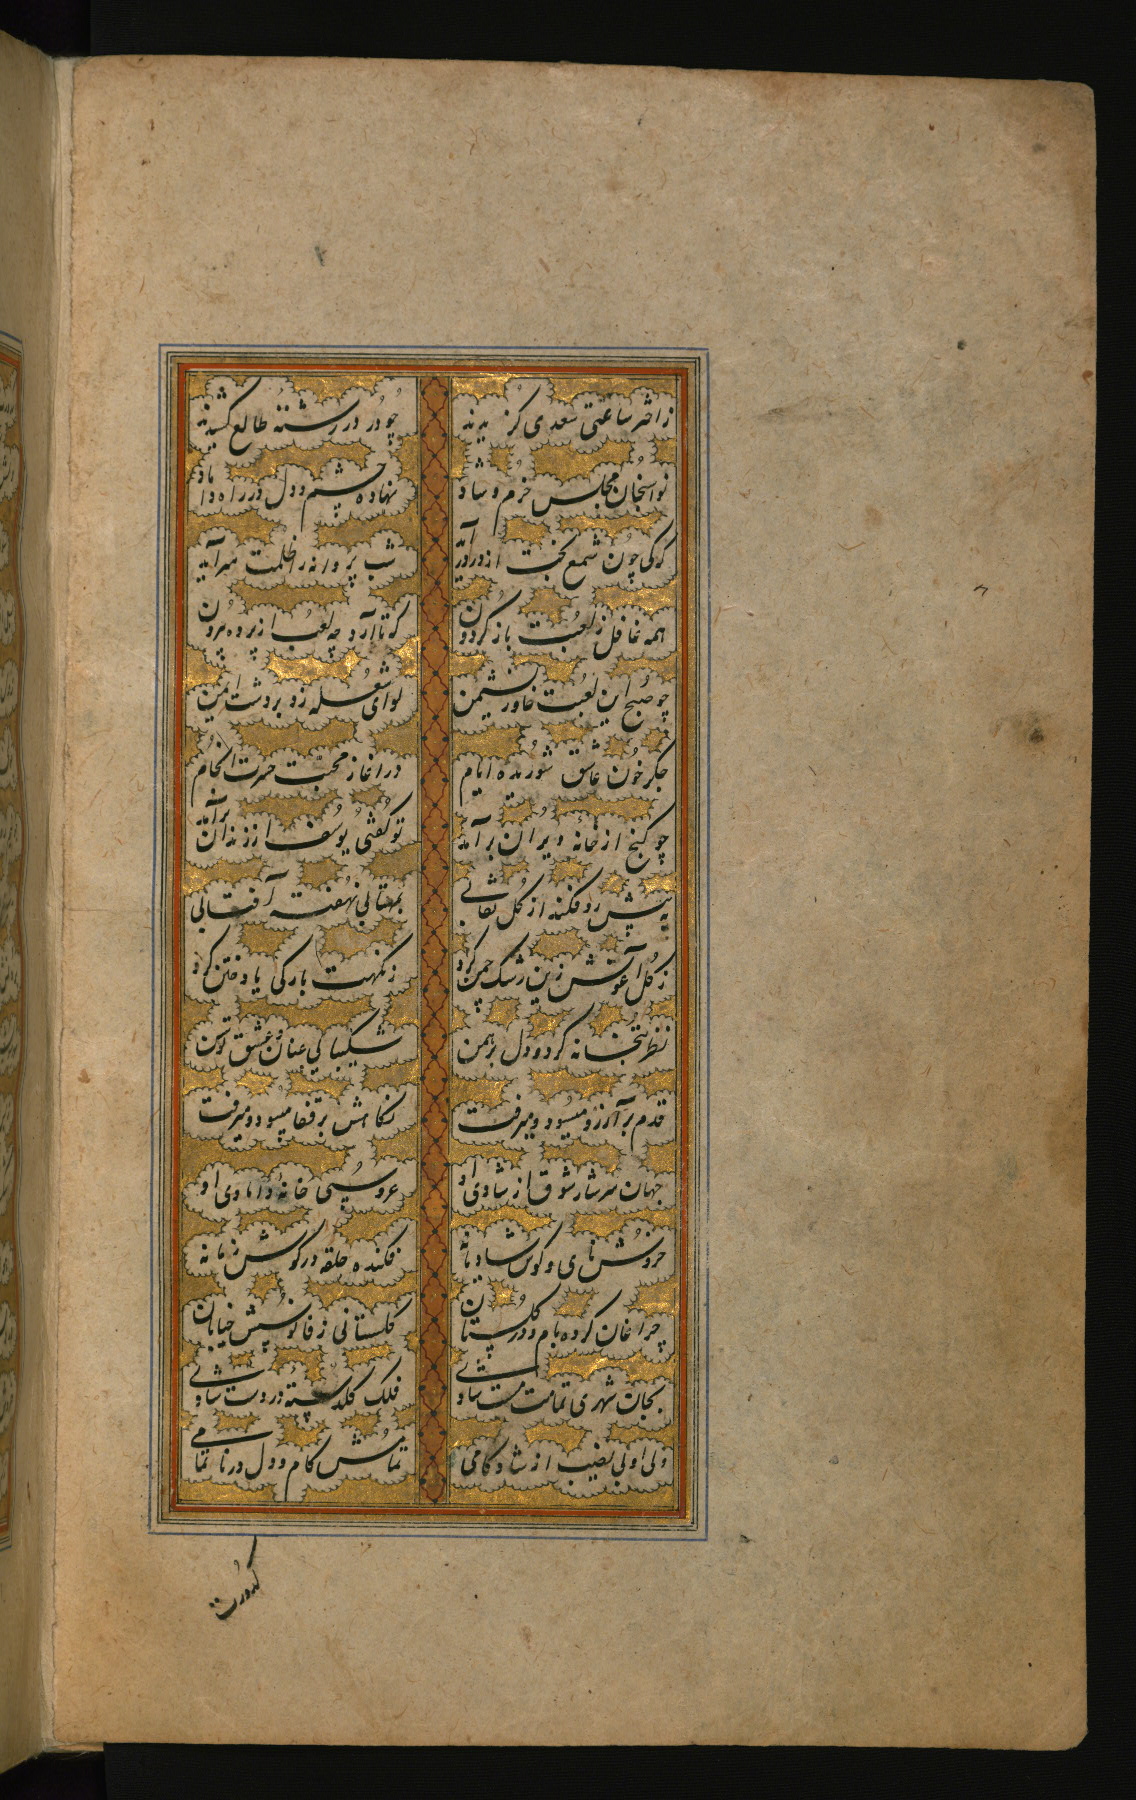 ز اختر ساعتی سعدی گزیدند چو در در رشتهٔ طالع کشیدند
نواسنجان مجلس خرم و شاد نهاده چشم و دل در راه داماد
که کی چون شمع بخت از در درآید شب پروانه را ظلمت سرآید
همه غافل ز لعبت باز گردون که تا آرد چه لعب از پرده بیرون
چو صبح این لعبت خاور نشیمن لوای شعله زد بر دشت ایمن
جگر خون عاشق شوریده ایام در آغاز محبت حسرت انجام
چو گنج از خانهٔ ویران برآمد تو گفتی یوسف از زندان برآمد
به پیش رو فکنده از گل نقابی بمهتابی نهفته آفتابی
ز گل آغوش زین رشک چمن کرد ز نکهت بارگی یاد ختن کرد
نظر بتخانه کرد و دل برهمن شکیبایی عنان و عشق توسن
قدم بر آرزو میسود و میرفت نگاهش بر قفا میبود و میرفت
جهان سرشار شوق از شادی او عروسی خانهٔ دامادی او
خروش نای و کوس شادیانه فکنده حلقه در گوش زمانه
چراغان کرده بام و در گلستان گلستانی ز فانوسش خیابان
بجان شهری تمامت مست شادی فلک گلدستهٔ در دست شادی
ولی او بی نصیب از شادکامی تمامش کام و دل در ناتمامی
کدورت